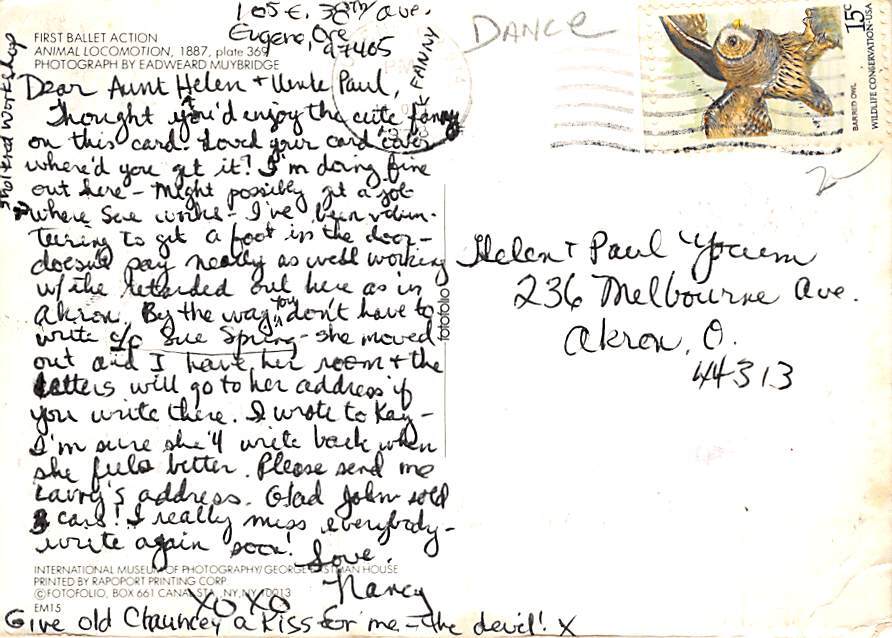 105 E. 38TH Ave.
Eugene, Ore
97405
DANCE
FIRST BALLET ACTION
ANIMAL LOCOMOTION, 1887, plate 369
PHOTOGRAPH BY EADWEARD MUYBRIDGE
15c
BARRED OWL
WILDLIFE CONSERVATION-USA
Dear Aunt Helen + Uncle Paul,
Thought you'd enjoy the cute fanny
on this card. Loved your card
where'd you get it! I'm doing fine
out here - Might possibly get a job
where Sue works - I've been volun-
teering to get a foot in the door -
doesn't pay nearly as well working
w/the retarded out here as in
Akron. By the way you don't have to
write c/o Sue Spring - she moved
out and I have her room + the
letters will go to her address if
you write there. I wrote to Kay -
I'm sure she'll write back when
she feels better. Please send me
Larry's address. Glad John sold
3 cars! I really miss everybody -
write again soon!
Love,
Nancy
XOXO
Give old Chauncey a Kiss for me - the devil! X
FANNY
Sheltered Workshop
fotofolio
Helen + Paul Yocum
236 Melbourne Ave.
Akron, O.
44313
INTERNATIONAL MUSEUM OF PHOTOGRAPHY/GEORGE EASTMAN HOUSE
PRINTED BY RAPOPORT PRINTING CORP
©FOTOFOLIO, BOX 661 CANAL STA., NY, NY 10013
EM15